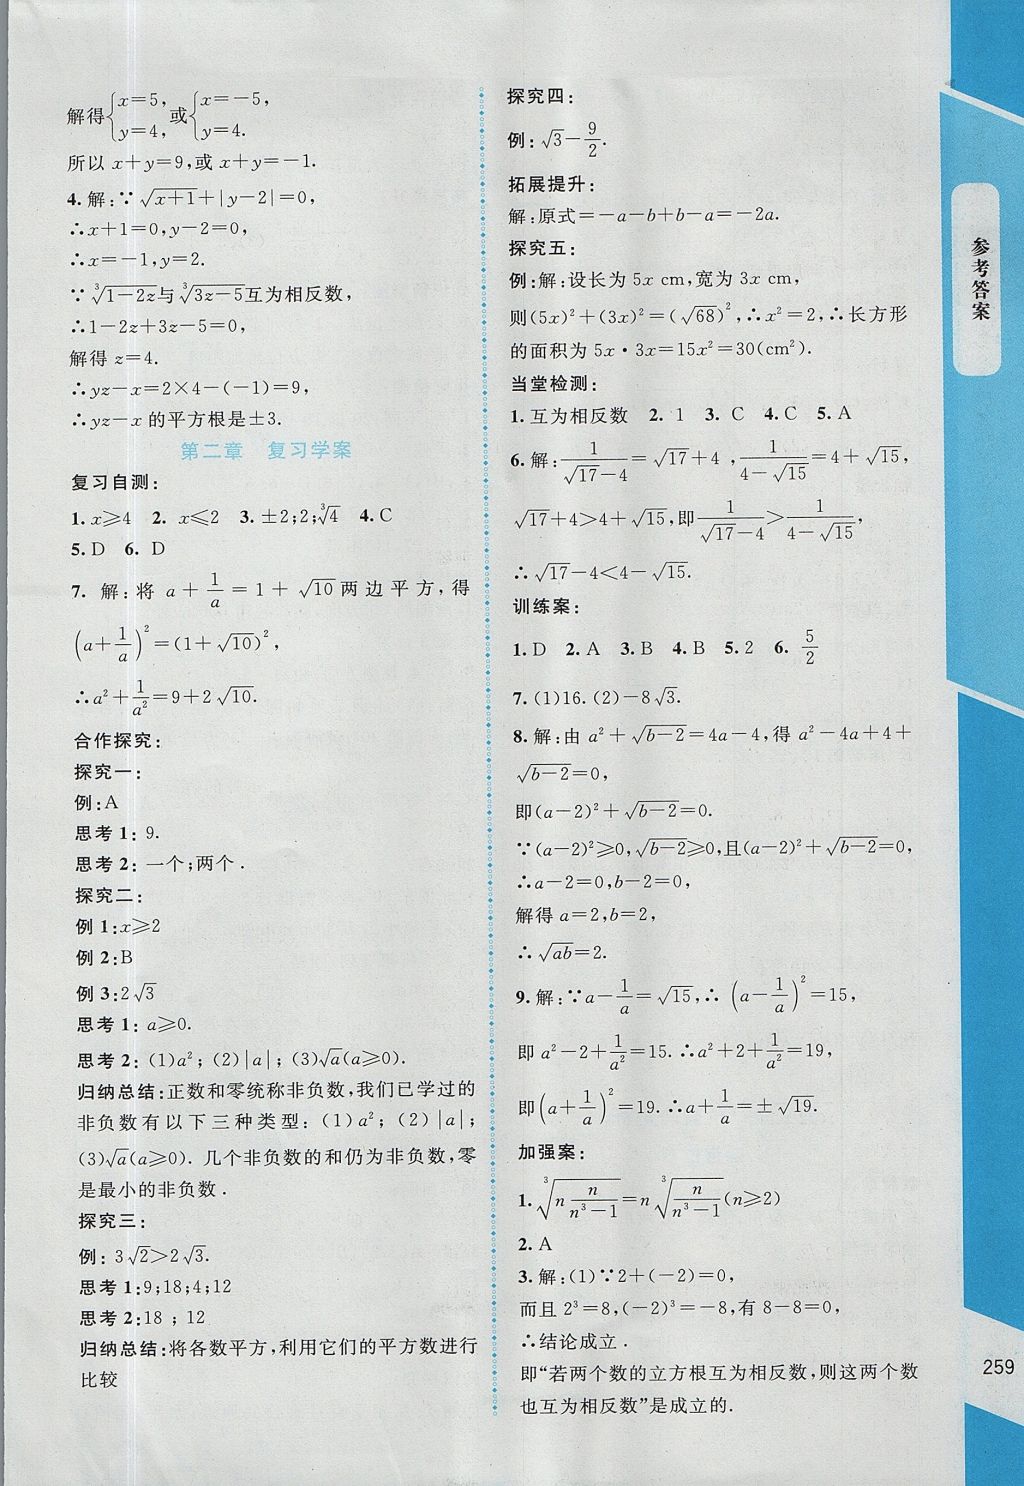 解得{x=5, y=4, 或{x=-5, y=4.
所以 x+y=9,或 x+y=-1.
4.解:∵√(x+1)+|y-2|=0,
∴x+1=0,y-2=0,
∴x=-1,y=2.
∵∛(1-2z)与∛(3z-5)互为相反数,
∴1-2z+3z-5=0,
解得 z=4.
∴yz-x=2×4-(-1)=9,
∴yz-x 的平方根是±3.
第二章 复习学案
复习自测:
1. x≥4 2. x≤2 3. ±2;2;∛4 4. C
5. D 6. D
7. 解:将 a+1/a=1+√10两边平方,得
(a+1/a)²=(1+√10)²,
∴a²+1/a²=9+2√10.
合作探究:
探究一:
例:A
思考 1: 9.
思考 2: 一个;两个.
探究二:
例 1:x≥2
例 2:B
例 3:2√3
思考 1: a≥0.
思考 2: (1)a²; (2)|a|; (3)√a(a≥0).
归纳总结:正数和零统称非负数,我们已学过的
非负数有以下三种类型: (1)a²; (2)|a|;
(3)√a(a≥0). 几个非负数的和仍为非负数,零
是最小的非负数.
探究三:
例: 3√2>2√3.
思考 1:9;18;4;12
思考 2:18 ; 12
归纳总结:将各数平方,利用它们的平方数进行
比较
探究四:
例: √3-9/2.
拓展提升:
解:原式=-a-b+b-a=-2a.
探究五:
例:解:设长为 5x cm,宽为 3x cm,
则(5x)²+(3x)²=(√68)²,∴x²=2,∴长方形
的面积为 5x·3x=15x²=30(cm²).
当堂检测:
1. 互为相反数 2. 1 3. C 4. C 5. A
6.解:1/(√17-4)=√17+4 ,1/(4-√15)=4+√15,
√17+4>4+√15,即1/(√17-4)>1/(4-√15),
∴√17-4<4-√15.
训练案:
1. D 2. A 3. B 4. B 5. 2 6. 5/2
7. (1)16. (2)-8√3.
8.解:由 a²+√(b-2)=4a-4,得 a²-4a+4+
√(b-2)=0,
即(a-2)²+√(b-2)=0.
∵(a-2)²≥0,√(b-2)≥0,且(a-2)²+√(b-2)=0,
∴a-2=0,b-2=0,
解得 a=2,b=2,
∴√(ab)=2.
9.解:∵a-1/a=√15,∴(a-1/a)²=15,
即 a²-2+1/a²=15.∴a²+2+1/a²=19,
即(a+1/a)²=19.∴a+1/a=±√19.
加强案:
1. ∛(n n/(n³-1))=n∛(n/(n³-1))(n≥2)
2. A
3.解:(1)∵2+(-2)=0,
而且 2³=8,(-2)³=-8,有 8-8=0,
∴结论成立.
即“若两个数的立方根互为相反数,则这两个数
也互为相反数”是成立的.
参考答案
259